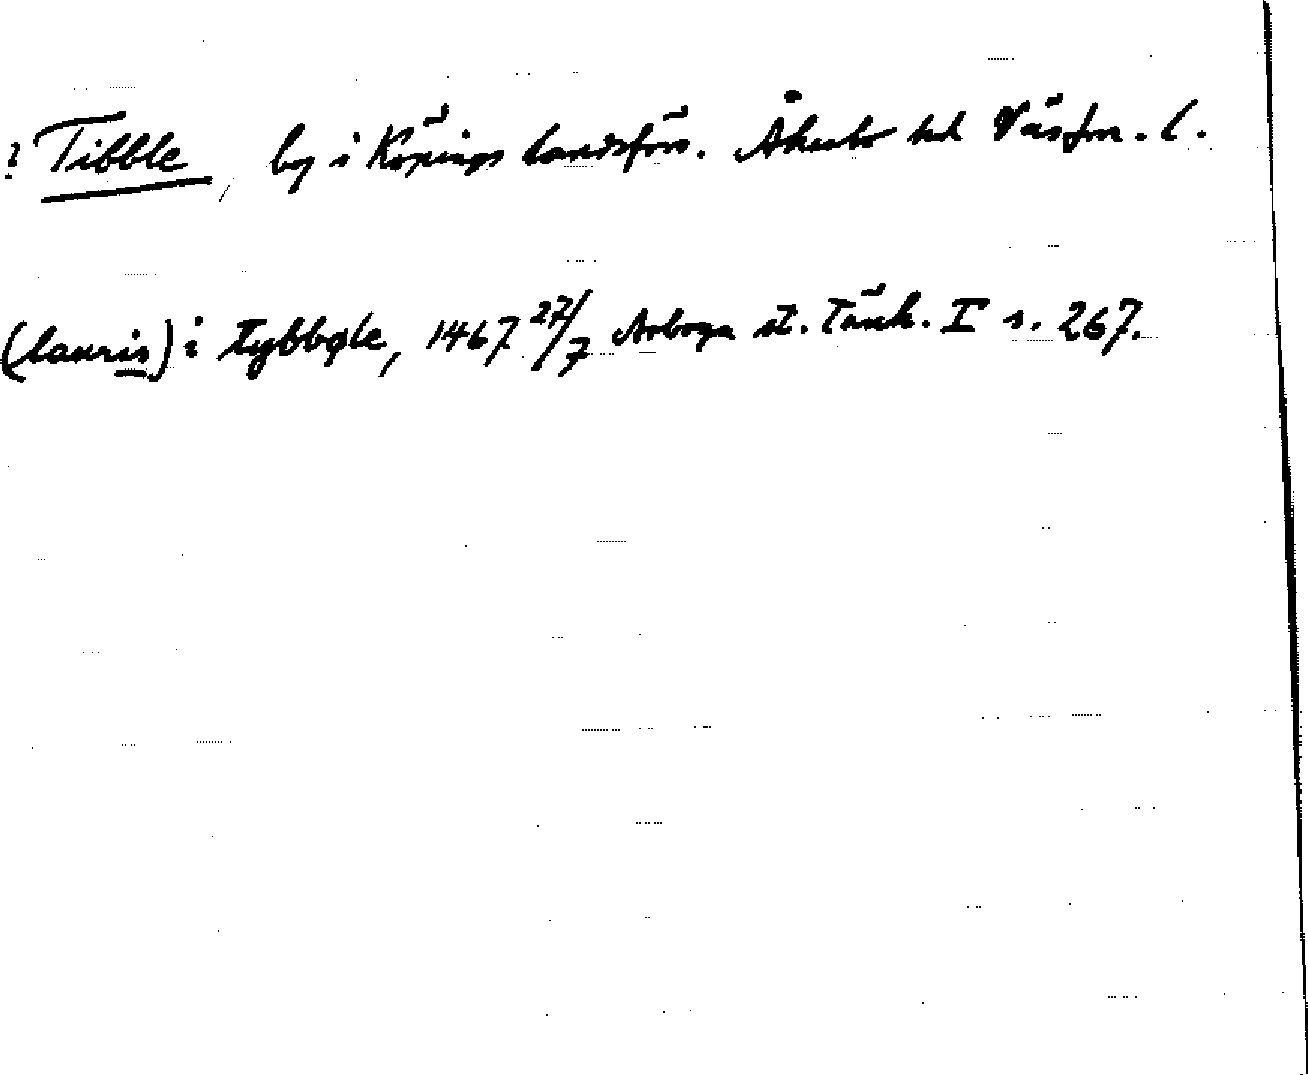 ? Tibble, by i Köpings landsförs. Åkerbo hd Västm. l.
(lauris) i tybbøle, 1467 27/7 Arboga st. Tänk. I s. 267.